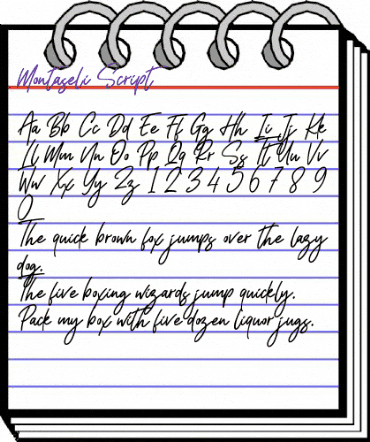 Montaseli Script
Aa Bb Cc Dd Ee Ff Gg Hh Ii Jj Kk
Ll Mm Nn Oo Pp Qq Rr Ss Tt Uu Vv
Ww Xx Yy Zz 1 2 3 4 5 6 7 8 9
0
The quick brown fox jumps over the lazy
dog.
The five boxing wizards jump quickly.
Pack my box with five dozen liquor jugs.